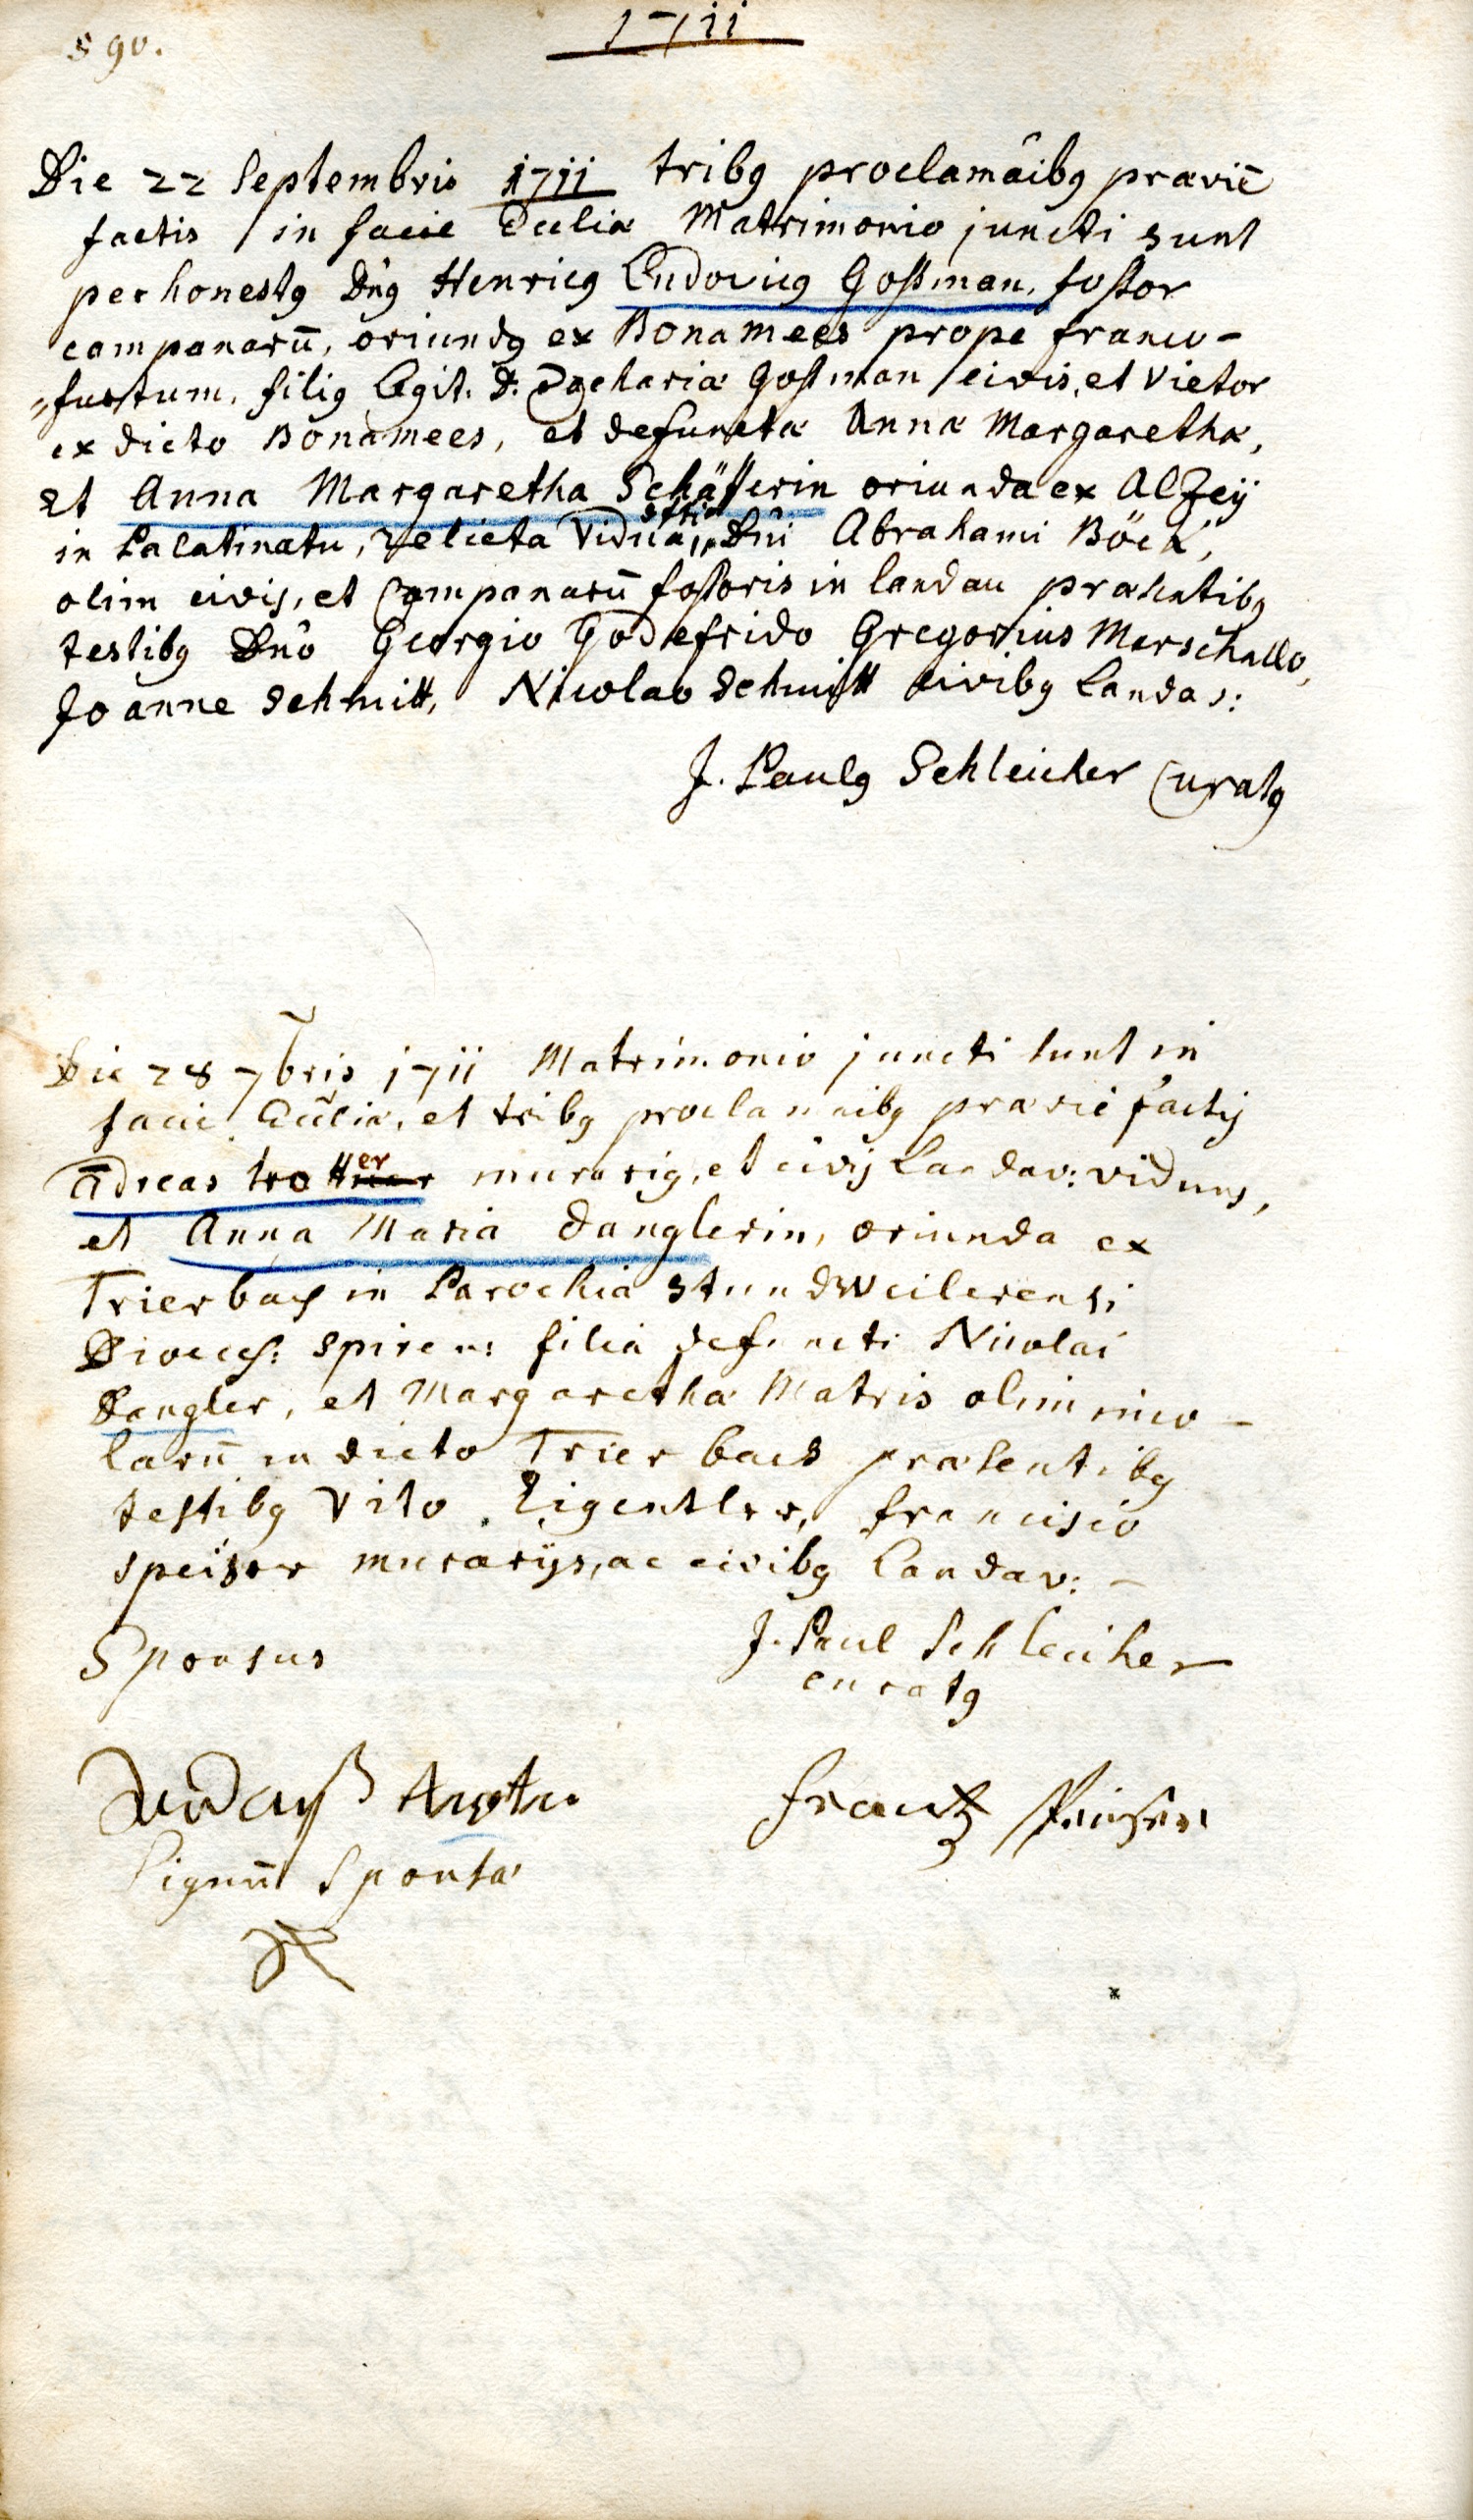 590.
1711
Die 22 Septembris 1711 tribq proclamaîbq prævie
factis in facie Eccliæ Matrimonio juncti sunt
perhonestq Dnq Henricq Ludovicq Goßman, fossor
campanarū, oriundq ex Bonamees prope francu-
„furtum, filiq legit. D. Zachariæ Goßman civis, et Vietor
ex dicto Bonamees, et defunctæ Annæ Margarethæ,
et Anna Margaretha Schäfferin oriunda ex Alzeÿ
in Palatinatu, relicta Vidua, Dni Abrahami Böck,
olim civis, et Campanarū fosoris in landau præsentibq
testibq Dnô Georgio Godefrido Gregorius Marschallo,
Joanne Schmitt, Nicolao Schmitt civibq Landav:
J. Paulq Schleicher Curatq
Die 28 7bris 1711 Matrimonio juncti sunt in
facie Eccliæ, et tribq proclamaibq prævie factis
ādreas trotter murariq, et civis Landav: viduus,
et Anna Maria Danglerin, oriunda ex
Trierbach in Parochia Stundweilerensi
Dioeces: spiren: filia defuncti Nicolai
Dangler, et Margarethæ Matris olim inco-
larū in dicto Trierbach præsentibq
testibq Vito Zigentler, francisco
speiser murariis, ac civibq Landav: -
Sponsus
J. Paul Schleicher
curatq
Frantz
Signū Sponsæ